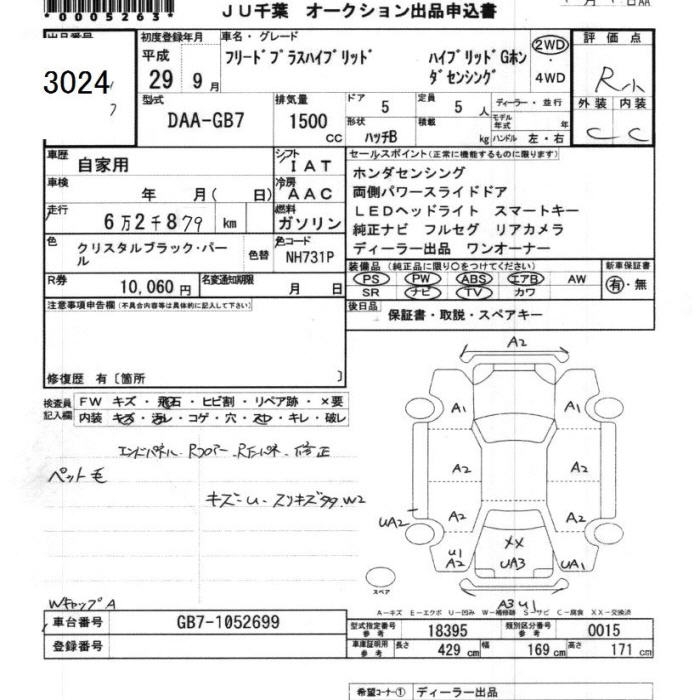 *0005263*
JU千葉 オークション出品申込書
出品番号
3024
初度登録年月
平成
29 9月
車名・グレード
フリードプラスハイブリッド ハイブリッドGホン
ダセンシング
2WD
・
4WD
評価点
R小
外装 内装
C C
型式
DAA-GB7
排気量
1500
CC
ドア 5
定員 5 人
ディーラー・並行
形状
ハッチB
積載 kg
モデル年式 年
ハンドル 左・右
車歴
自家用
シフト
IAT
車検
年 月( 日)
冷房
AAC
走行
6万2千879 km
燃料
ガソリン
色
クリスタルブラック・パー
ル
色替
色コード
NH731P
R券
10,060円
名変通知期限
月 日
注意事項申告欄(不具合内容等は具体的に記入して下さい)
修復歴 有〔箇所 〕
セールスポイント(正常に機能するものに限ります)
ホンダセンシング
両側パワースライドドア
LEDヘッドライト スマートキー
純正ナビ フルセグ リアカメラ
ディーラー出品 ワンオーナー
装備品(純正品に限り○をつけてください)
PS PW ABS エアB AW
SR ナビ TV カワ
新車保証書
有・無
後日品
保証書・取説・スペアキー
検査員
記入欄
FW キズ・飛石・ヒビ割・リペア跡・×要
内装 キズ・汚レ・コゲ・穴・スレ・キレ・破レ
エンドパネル・Rフロアー・修正
ペット毛
キズ・U・スリキズ多々.W2
WキャップA
A2
A1 A1
A2 A2
A2 A2
UA2
U1
A2
XX
UA3
UA1
A3 U1
スペア
A-キズ E-エクボ U-凹み W-補修跡 S-サビ C-腐食 XX-交換済
車台番号 GB7-1052699
登録番号
型式指定番号
参考
18395
類別区分番号
参考
0015
車庫証明用
参考
長さ 429 cm
幅 169 cm
高さ 171 cm
希望コーナー① ディーラー出品